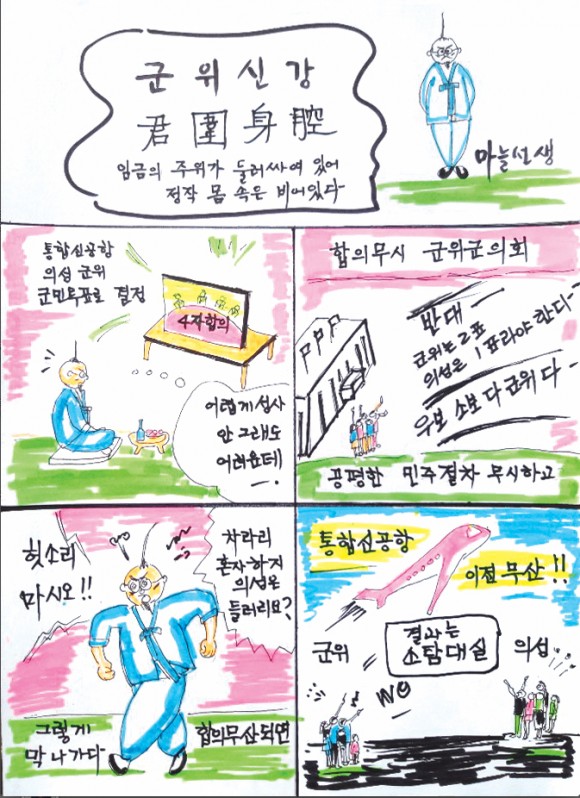 군 위 신 강
君 圍 身 腔
임금의 주위가 둘러싸여 있어
정작 몸 속은 비어있다
마늘선생
통합신공항
의성 군위
군민투표로 결정
4자합의
어렵게 성사
안그래도
어려운데
합의무시 군위군의회
반대
군위는 2표
의성은 1표라야 한다
우보 소보 다 군위다
공평한 민주절차 무시하고
헛소리
마시오!!
차라리
혼자하지
의성은
들러리요?
그렇게
막 나가다
합의무산되면
통합신공항
이전 무산!!
결과는
소탐대실
군위
의성